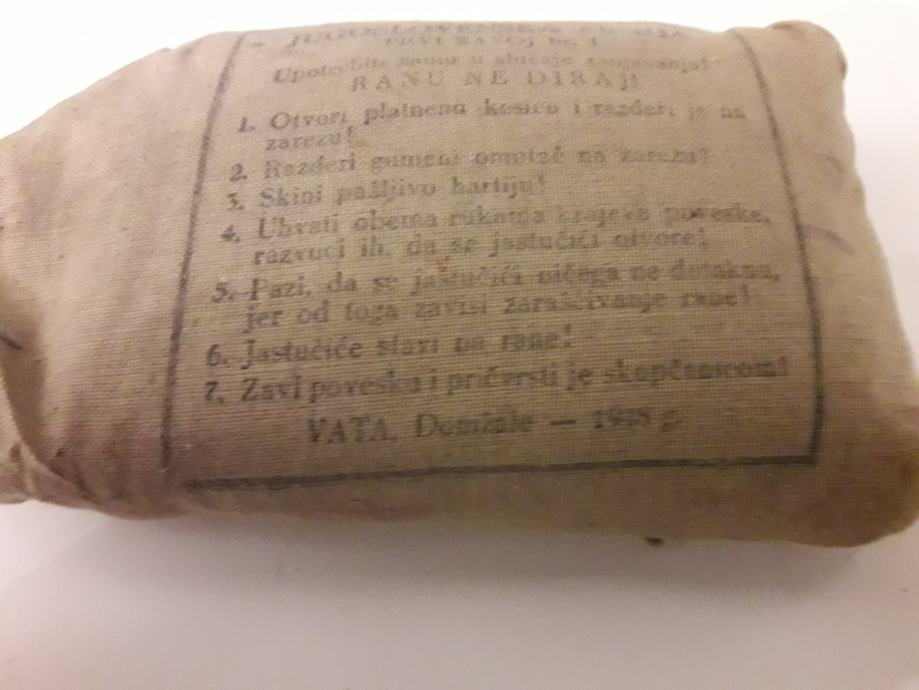 JUGOSLOVENSKA
PRVI ZAVOJ br. 1
Upotrebiti samo u slučaju ranjavanja!
RANU NE DIRAJ!
1. Otvori platnenu kesicu i razderi je na
zarezu!
2. Razderi gumeni omotač na zarezu!
3. Skini pažljivo hartiju!
4. Uhvati obema rukama krajeve poveske,
razvuci ih, da se jastučići otvore!
5. Pazi, da se jastučići ničega ne dotaknu,
jer od toga zavisi zarašćivanje rane!
6. Jastučiće stavi na rane!
7. Zavi povesku i pričvrsti je
VATA, Domžale — g.